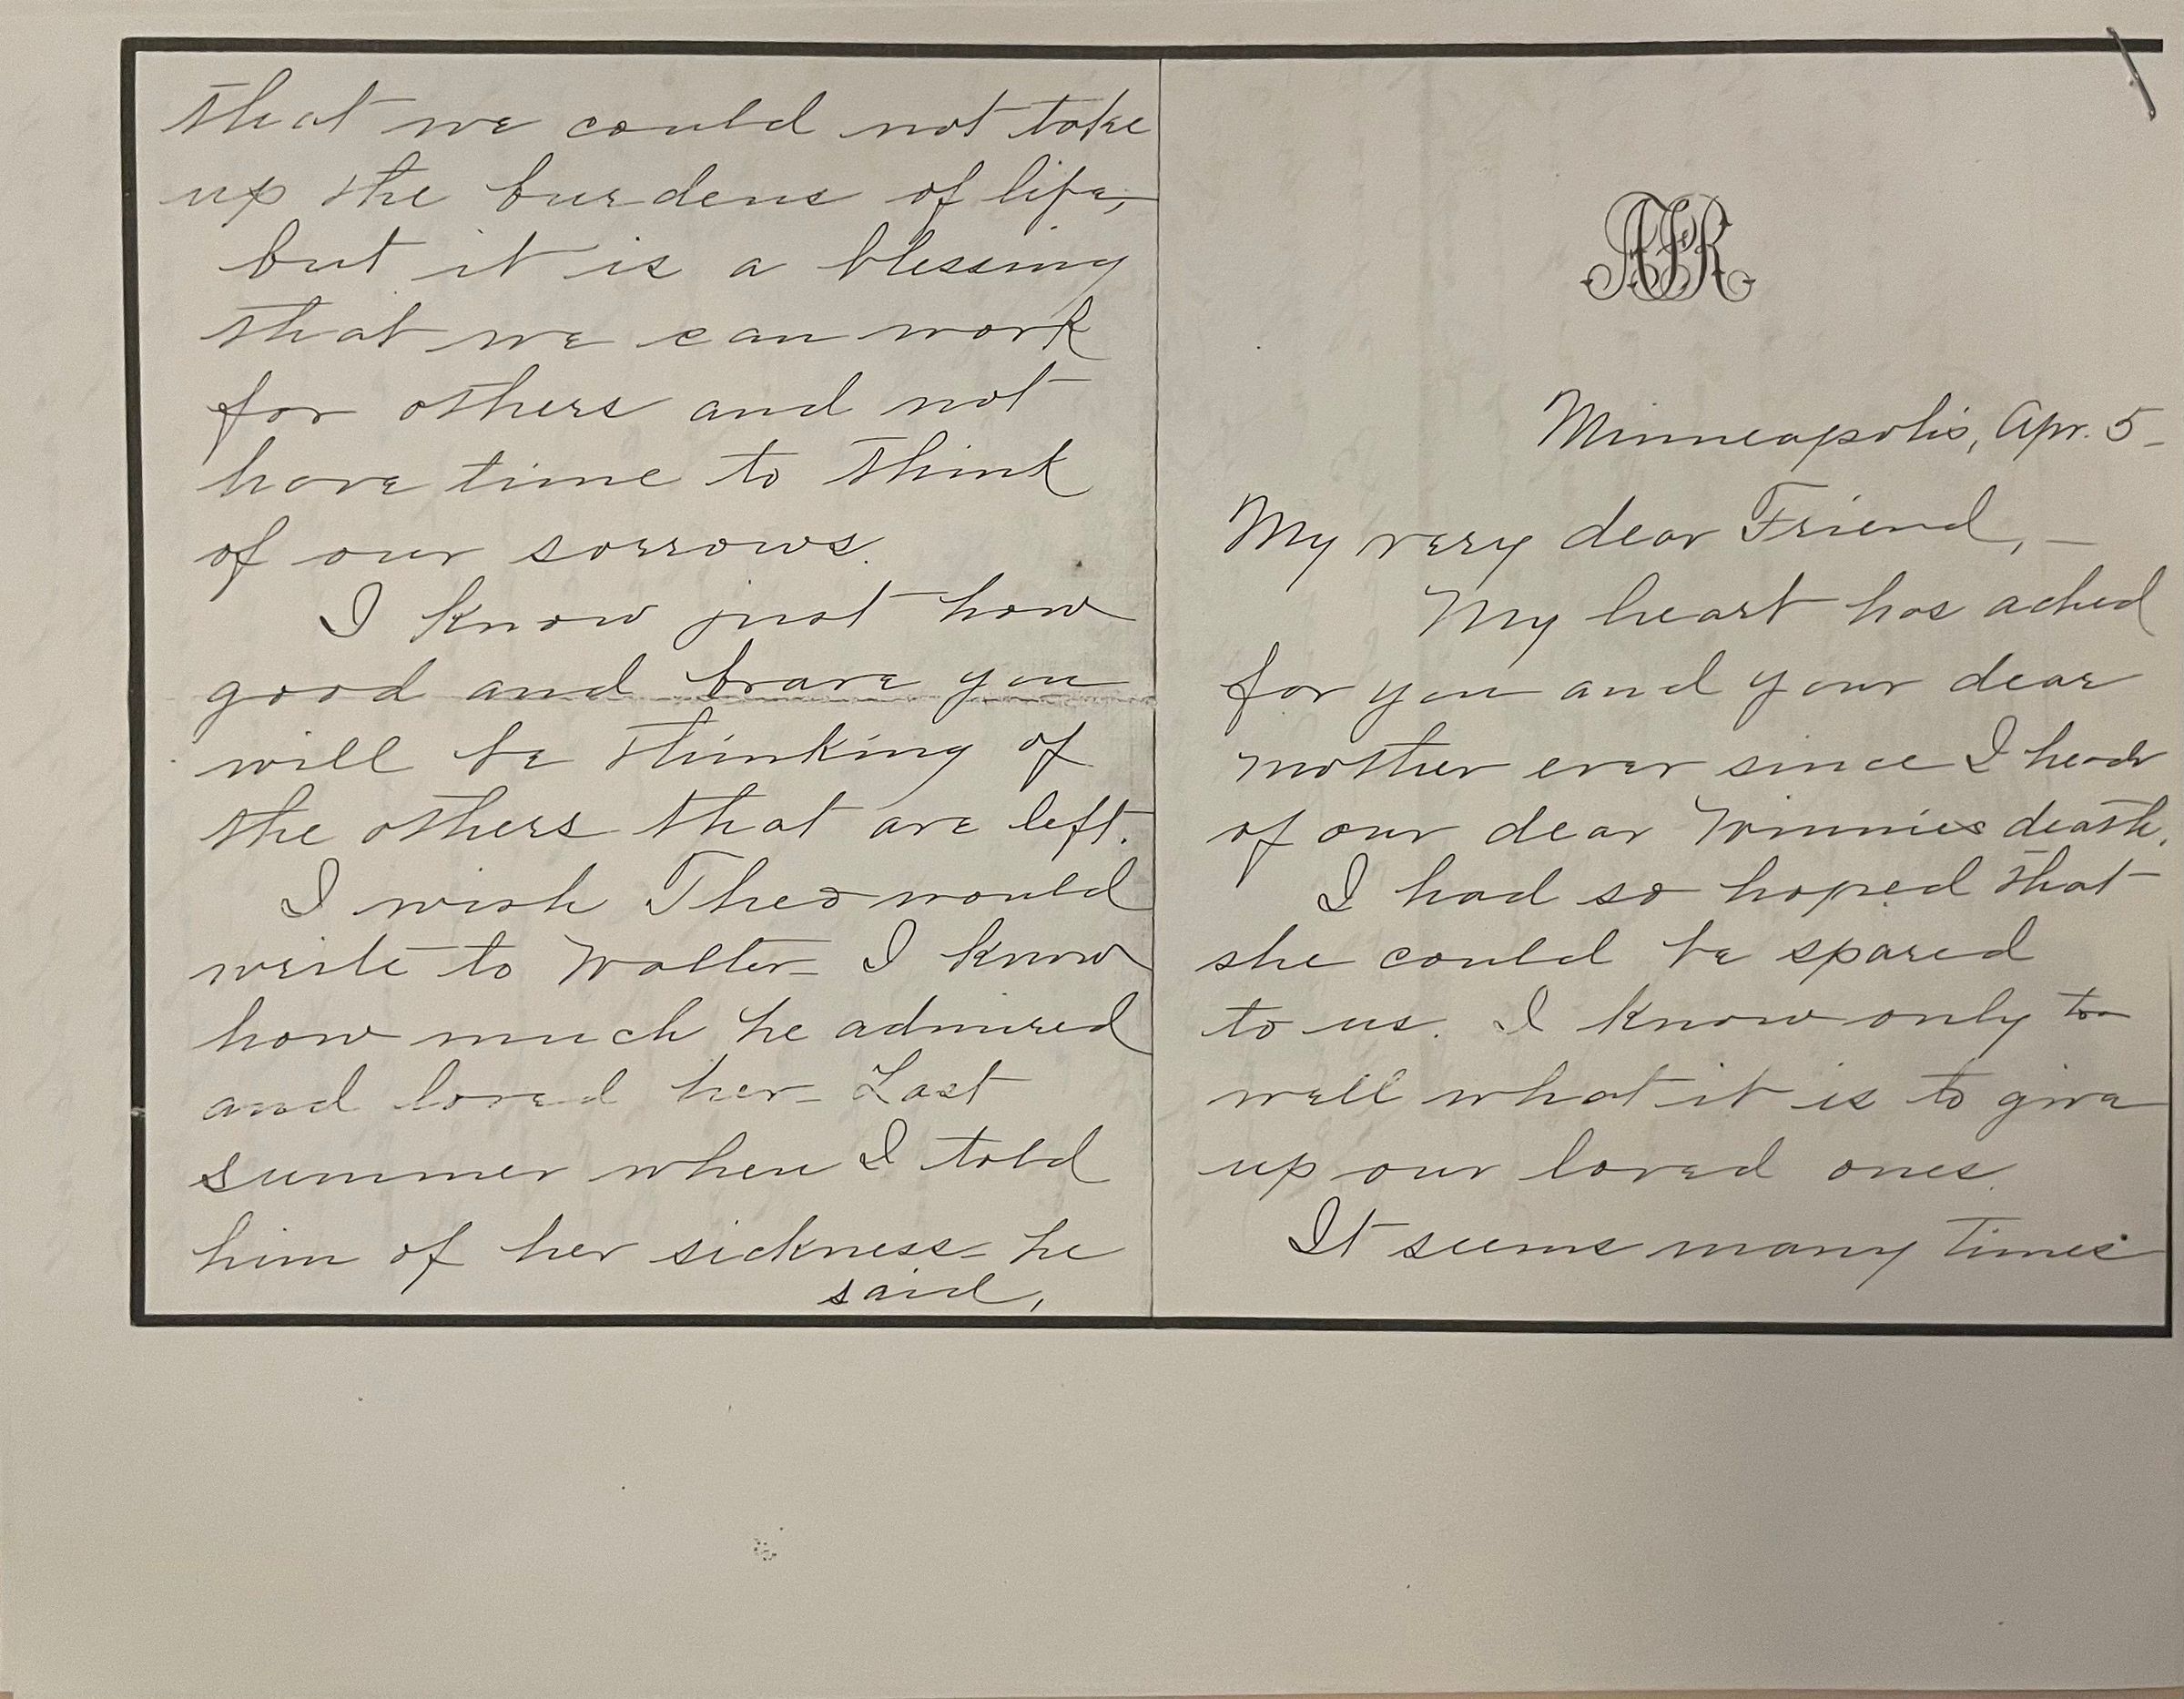 AFR
Minneapolis, Apr. 5-
My very dear Friend, -
My heart has ached
for you and your dear
mother ever since I heard
of our dear Winnies death.
I had so hoped that
she could be spared
to us. I know only too
well what it is to give
up our loved ones.
It seems many times
that we could not take
up the burdens of life,
but it is a blessing
that we can work
for others and not
have time to think
of our sorrows.
I know just how
good and brave you
will be thinking of
the others that are left.
I wish Theo would
write to Walter - I know
how much he admired
and loved her - Last
summer when I told
him of her sickness - he
said,